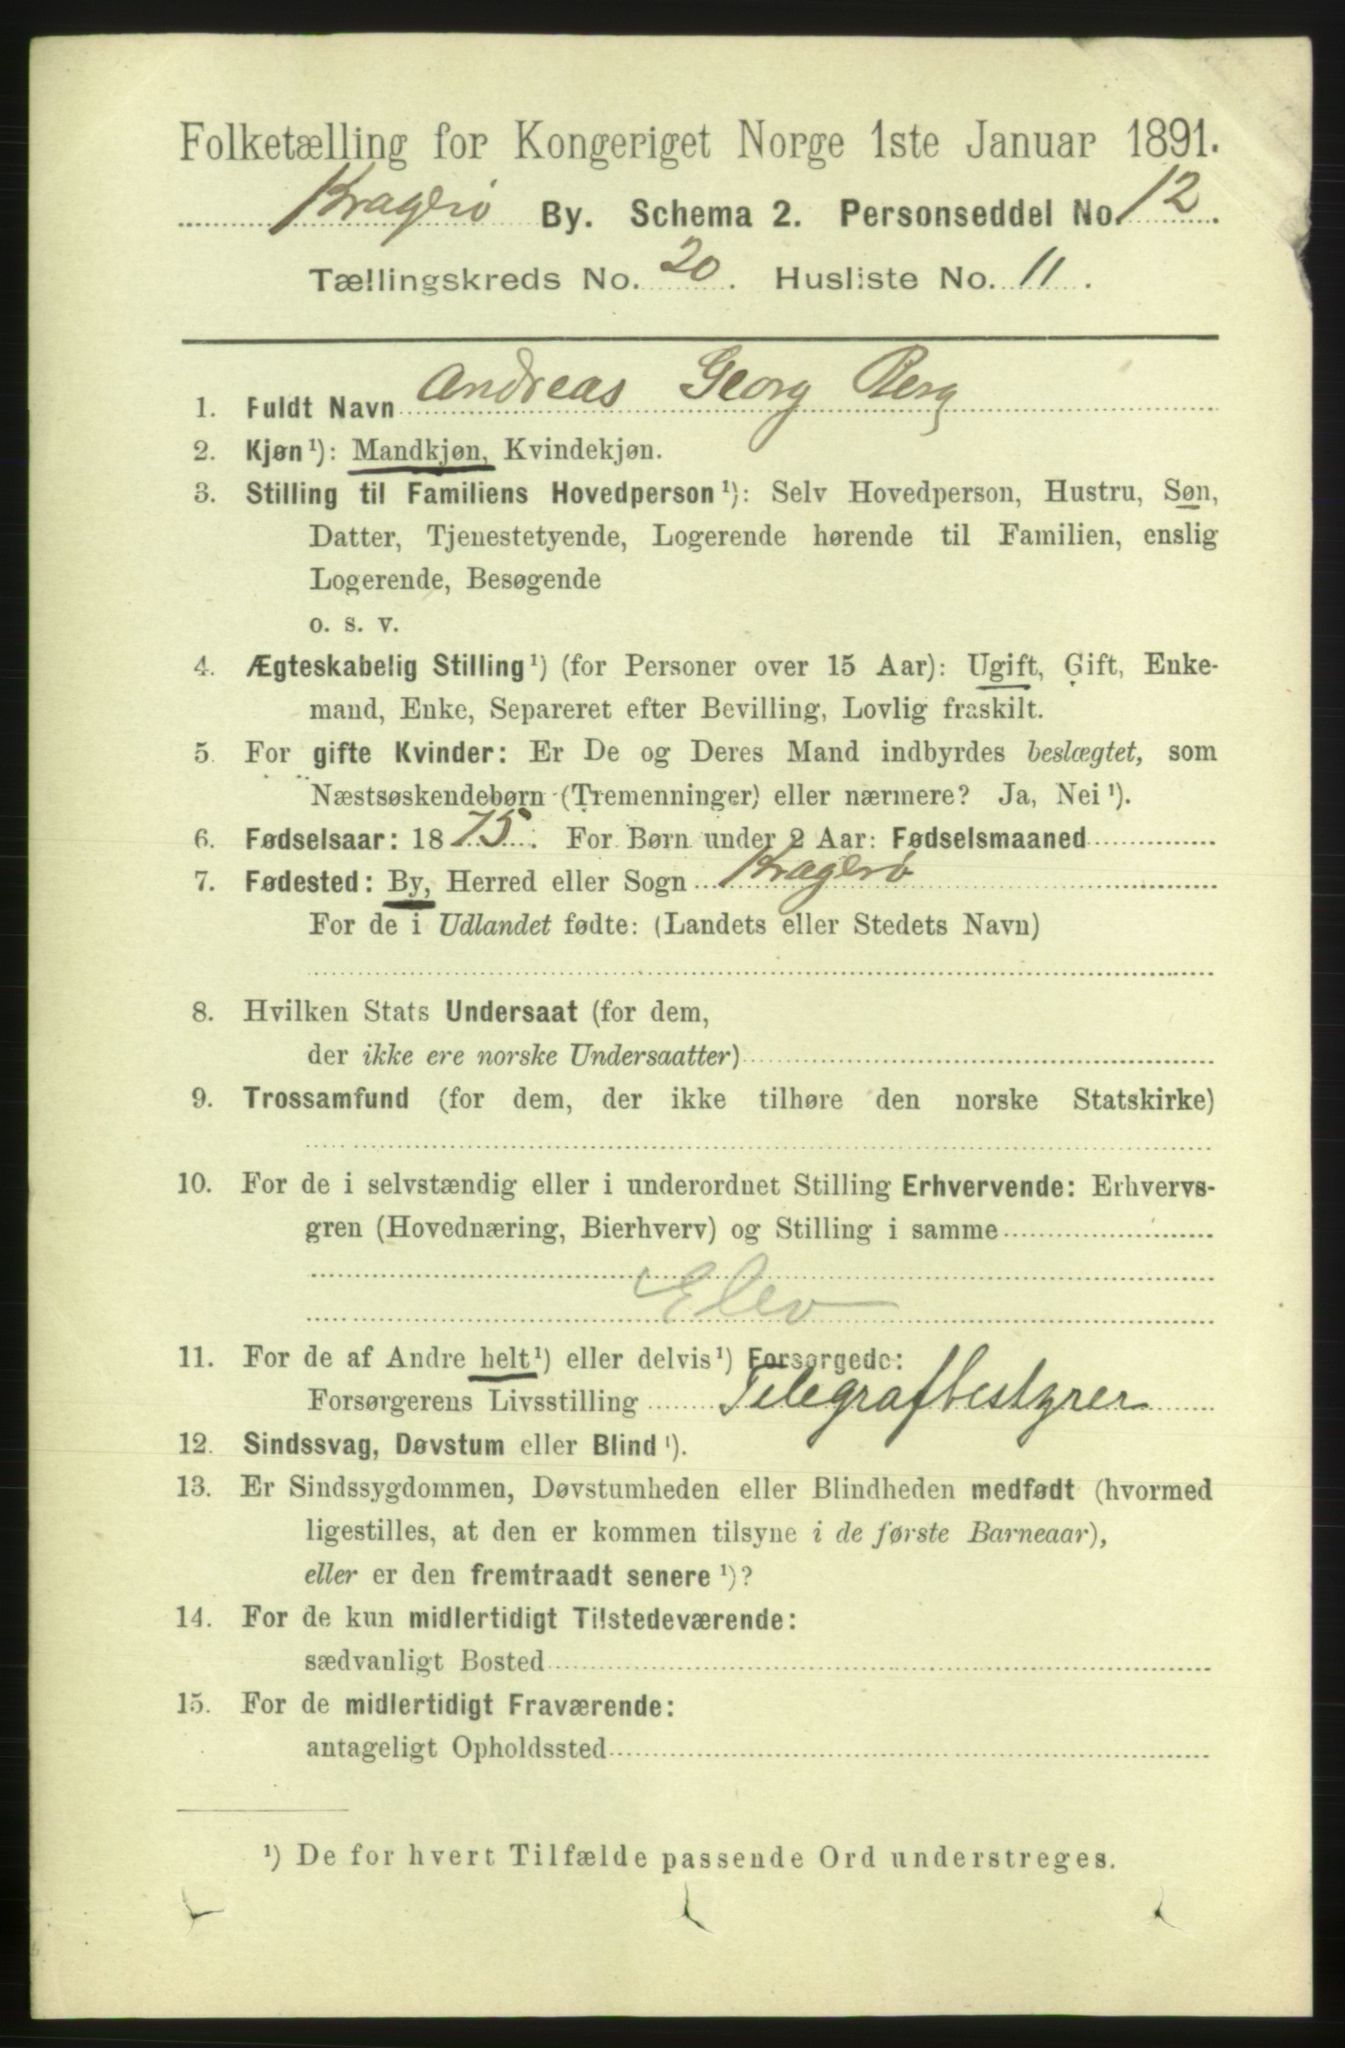 Folketælling for Kongeriget Norge 1ste Januar 1891.
Kragerø By. Schema 2. Personseddel No. 12.
Tællingskreds No. 20. Husliste No. 11.
1. Fuldt Navn Andreas Georg Berg
2. Kjøn¹): Mandkjøn, Kvindekjøn.
3. Stilling til Familiens Hovedperson¹): Selv Hovedperson, Hustru, Søn,
Datter, Tjenestetyende, Logerende hørende til Familien, enslig
Logerende, Besøgende
o. s. v.
4. Ægteskabelig Stilling¹) (for Personer over 15 Aar): Ugift, Gift, Enke-
mand, Enke, Separeret efter Bevilling, Lovlig fraskilt.
5. For gifte Kvinder: Er De og Deres Mand indbyrdes beslægtet, som
Næstsøskendebørn (Tremenninger) eller nærmere? Ja, Nei¹).
6. Fødselsaar: 1875. For Børn under 2 Aar: Fødselsmaaned
7. Fødested: By, Herred eller Sogn Kragerø
For de i Udlandet fødte: (Landets eller Stedets Navn)
8. Hvilken Stats Undersaat (for dem,
der ikke ere norske Undersaatter)
9. Trossamfund (for dem, der ikke tilhøre den norske Statskirke)
10. For de i selvstændig eller i underordnet Stilling Erhvervende: Erhvervs-
gren (Hovednæring, Bierhverv) og Stilling i samme
Elev
11. For de af Andre helt¹) eller delvis¹) Forsørgede:
Forsørgerens Livsstilling Telegrafbestyrer
12. Sindssvag, Døvstum eller Blind¹).
13. Er Sindssygdommen, Døvstumheden eller Blindheden medfødt (hvormed
ligestilles, at den er kommen tilsyne i de første Barneaar),
eller er den fremtraadt senere¹)?
14. For de kun midlertidigt Tilstedeværende:
sædvanligt Bosted
15. For de midlertidigt Fraværende:
antageligt Opholdssted
¹) De for hvert Tilfælde passende Ord understreges.